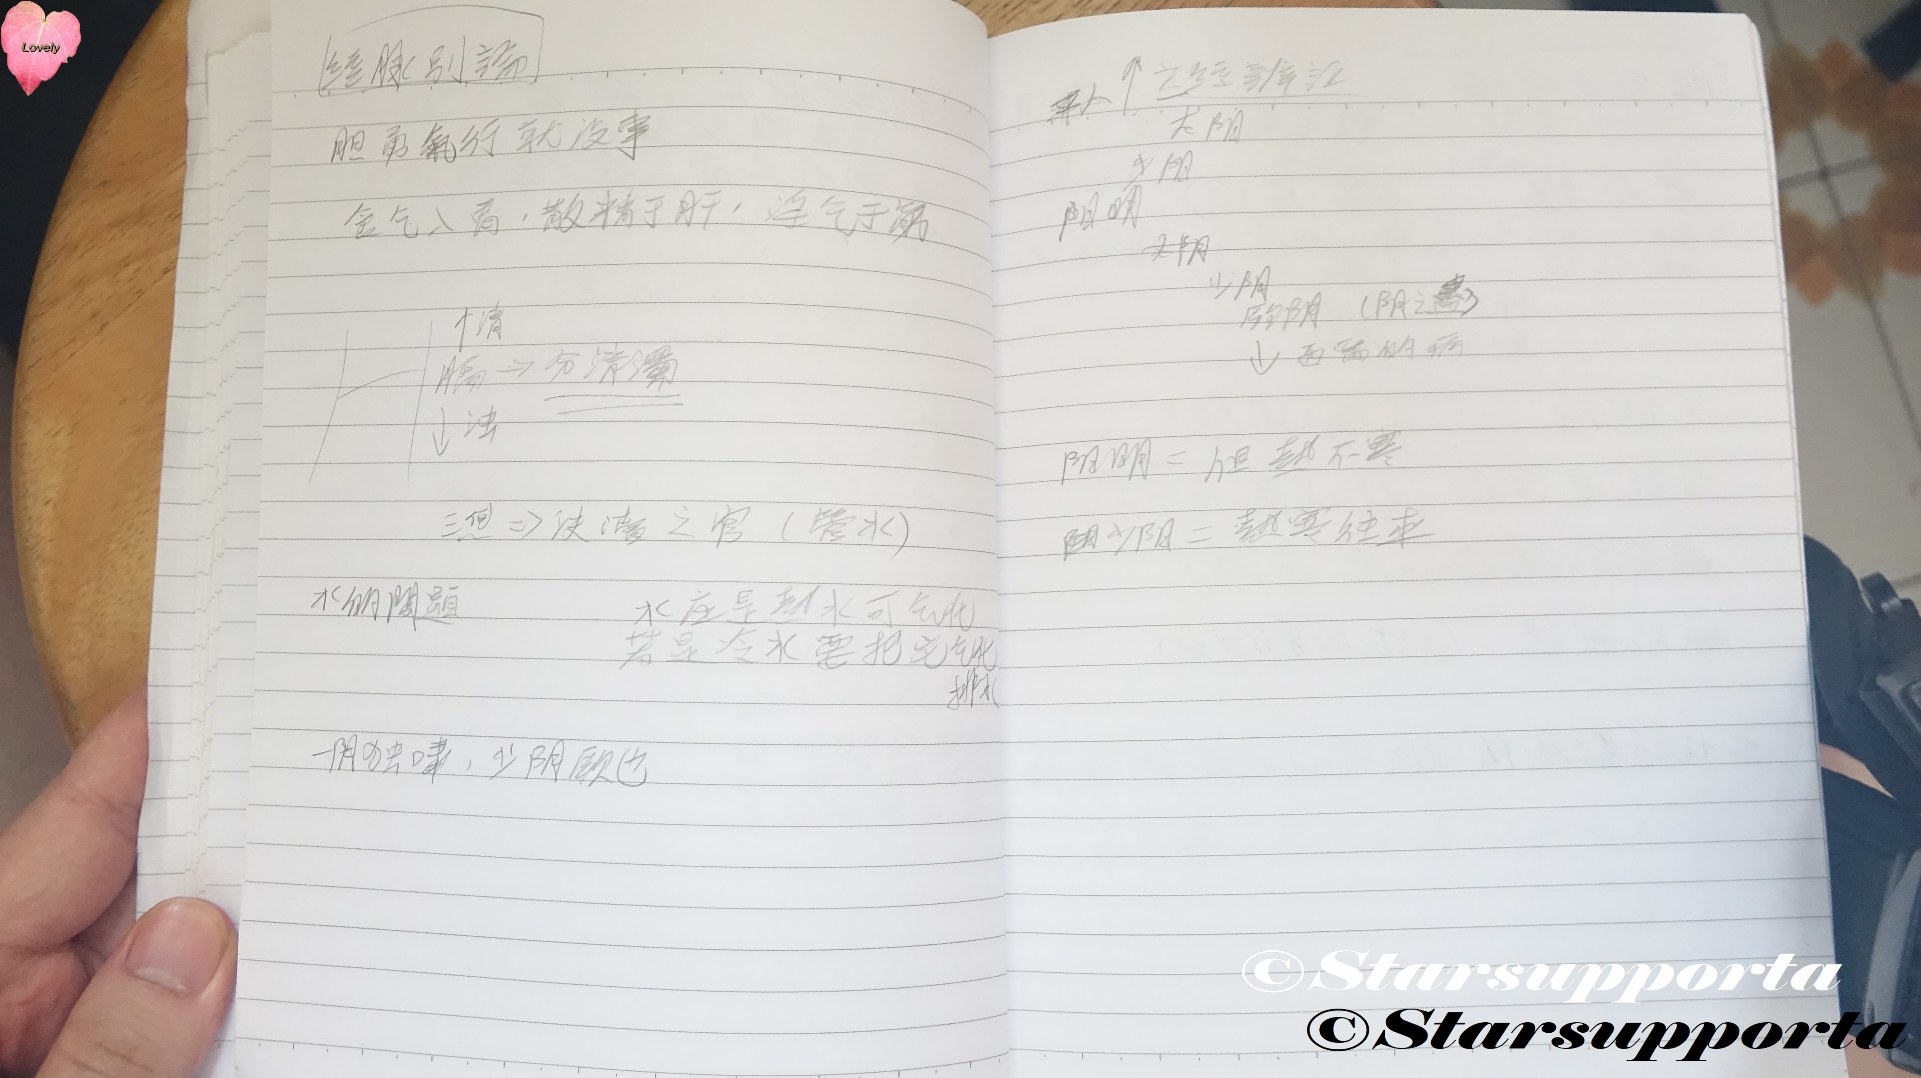 Lovely
經脉别論
胆勇氣行就没事
食气入胃，散精于肝，淫气于筋
↑清
腸⇒分清濁
↓浊
三焦⇒决瀆之官（管水）
水的問題
水应是熱水可气化
若是冷水要把它气化
排水
一阴独啸，少阴厥也
↑六经
太阳
少阳
阳明
太阴
少阴
厥阴（阴之盡）
↓ 两端的病
阳明＝但熱不寒
少阳＝熱寒往来
©Starsupporta
©Starsupporta